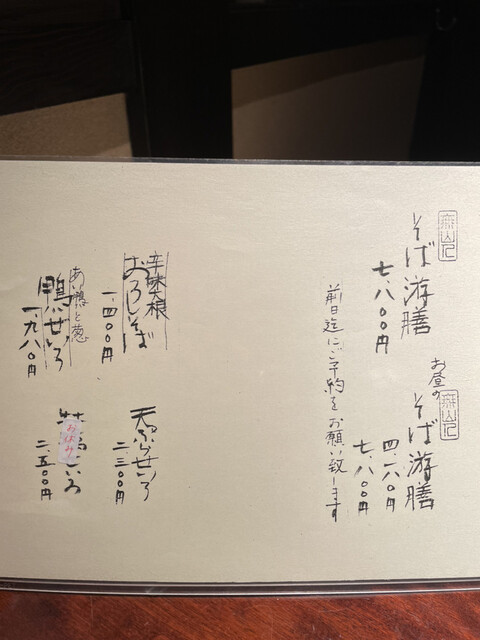 そば游膳
七、八〇〇円
お昼の
そば游膳
四、八〇〇円
七、八〇〇円
前日迄にご予約をお願い致します
辛味大根
おろしそば
一、四〇〇円
天ぷらせいろ
二、三〇〇円
あい鴨と葱
鴨せいろ
一、九八〇円
お休み
いろ
二、五〇〇円